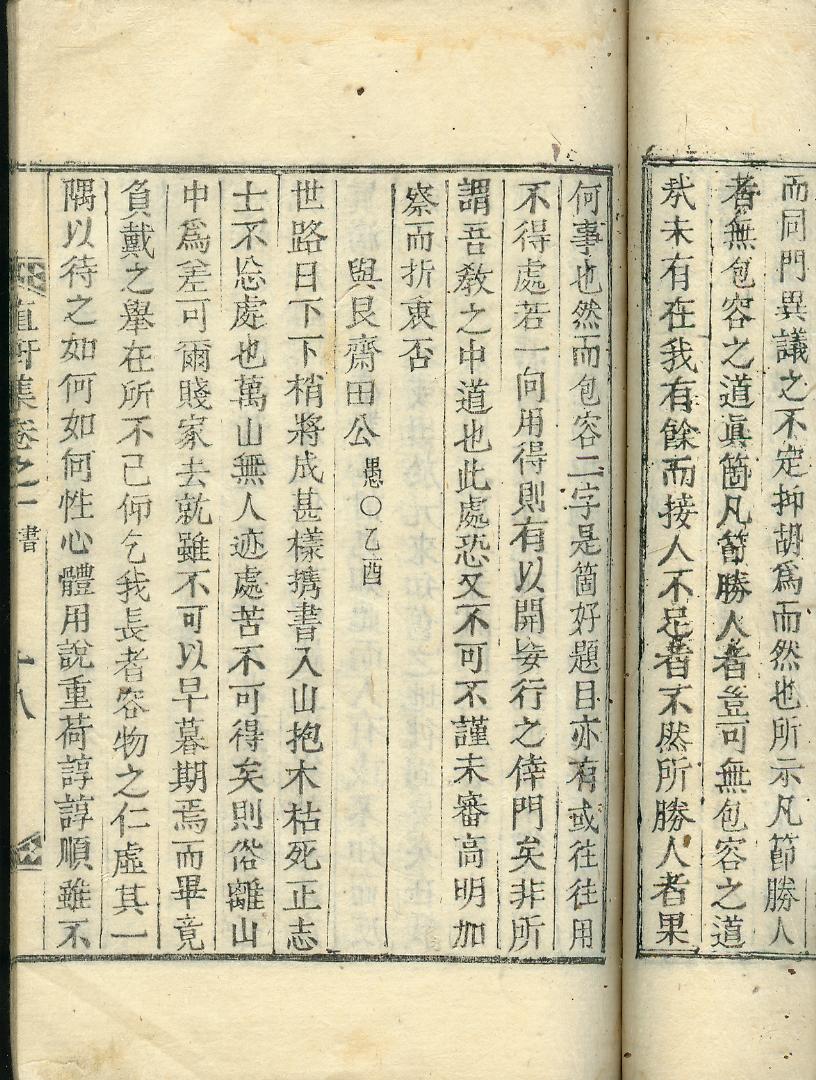 而同門異議之不定抑胡爲而然也所示凡節勝人
者無包容之道眞箇凡節勝人者豈可無包容之道
㢤未有在我有餘而接人不足者不然所勝人者果
何事也然而包容二字是箇好題目亦有或往往用
不得處若一向用得則有以開妄行之倖門矣非所
謂吾教之中道也此處恐又不可不謹未審高明加
察而折衷否
與艮齋田公愚○乙酉
世路日下下梢將成甚樣携書入山抱木枯死正志
士不忘處也萬山無人迹處苦不可得矣則俗離山
中爲差可爾賤家去就雖不可以早暮期焉而畢竟
負戴之擧在所不已仰乞我長者容物之仁虛其一
隅以待之如何如何性心體用說重荷諄諄順雖不
集卷之一 書 十八